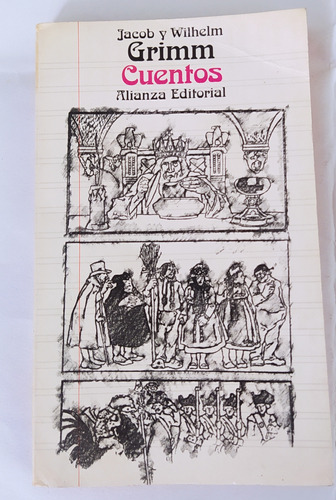 Jacob y Wilhelm
Grimm
Cuentos
Alianza Editorial